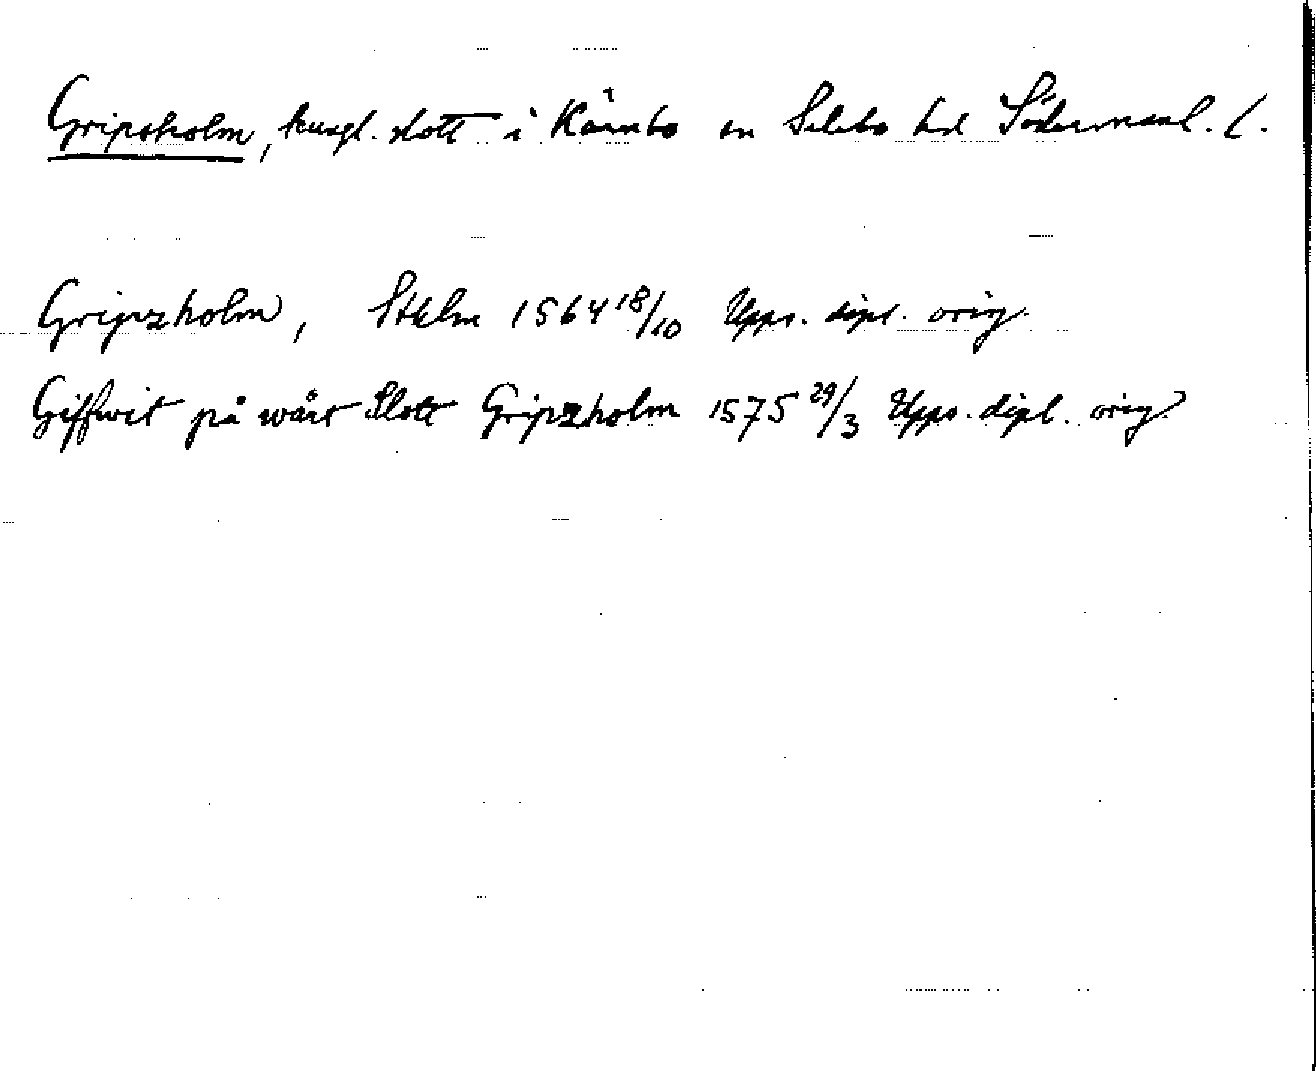 Gripsholm, kungl. slott i Kärnbo sn Selebo hd Södermanl. l.
Gripzholm, Sthlm 1564 18/10 Upps. dipl. orig.
Giffwit på wårt Slott Gripzholm 1575 29/3 Upps. dipl. orig